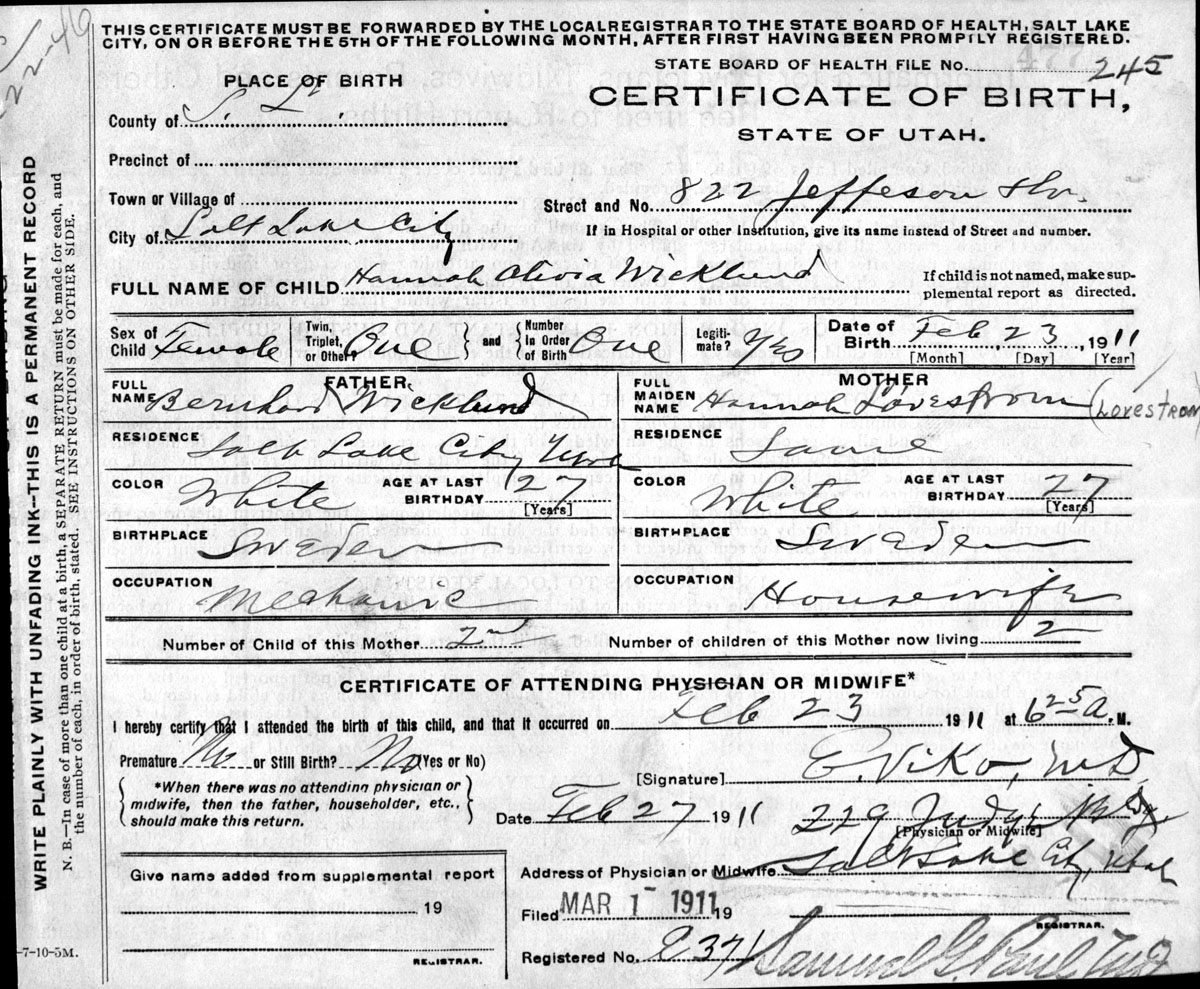 22-46
THIS CERTIFICATE MUST BE FORWARDED BY THE LOCAL REGISTRAR TO THE STATE BOARD OF HEALTH, SALT LAKE
CITY, ON OR BEFORE THE 5TH OF THE FOLLOWING MONTH, AFTER FIRST HAVING BEEN PROMPTLY REGISTERED.
STATE BOARD OF HEALTH FILE NO. 477 245
PLACE OF BIRTH
CERTIFICATE OF BIRTH,
STATE OF UTAH.
County of S. L.
Precinct of
Town or Village of
Street and No. 822 Jeffeson
City of Salt Lake City
If in Hospital or other Institution, give its name instead of Street and number.
FULL NAME OF CHILD Hannah Olivia Wicklund
If child is not named, make sup-
plemental report as directed.
Sex of Child Female
Twin, Triplet, or Other? One and Number In Order of Birth One
Legiti-mate? Yes
Date of Birth Feb. 23, 1911
[Month] [Day] [Year]
FATHER
FULL NAME Bernhard Wicklund
MOTHER
FULL MAIDEN NAME Hannah Lovestrom (LOVESTROM
RESIDENCE Salt Lake City Utah
RESIDENCE Same
COLOR White AGE AT LAST BIRTHDAY 27 [Years]
COLOR White AGE AT LAST BIRTHDAY 27 [Years]
BIRTHPLACE Sweden
BIRTHPLACE Sweden
OCCUPATION Mechanic
OCCUPATION Housewife
Number of Child of this Mother 2nd Number of children of this Mother now living 2
CERTIFICATE OF ATTENDING PHYSICIAN OR MIDWIFE*
I hereby certify that I attended the birth of this child, and that it occurred on Feb 23 1911 at 6 25 a. M.
Premature No or Still Birth? No (Yes or No)
[Signature] E. Viko, M.D.
*When there was no attending physician or
midwife, then the father, householder, etc.,
should make this return.
Date Feb 27 1911 229 Judge
[Physician or Midwife]
Address of Physician or Midwife Salt Lake City, Utah
Give name added from supplemental report
19
REGISTRAR.
Filed MAR 1 1911 19
REGISTRAR.
Registered No. 237 Samuel G. Paul
-7-10-5M.
WRITE PLAINLY WITH UNFADING INK—THIS IS A PERMANENT RECORD
N. B.—In case of more than one child at a birth, a SEPARATE RETURN must be made for each, and
the number of each, in order of birth, stated. SEE INSTRUCTIONS ON OTHER SIDE.